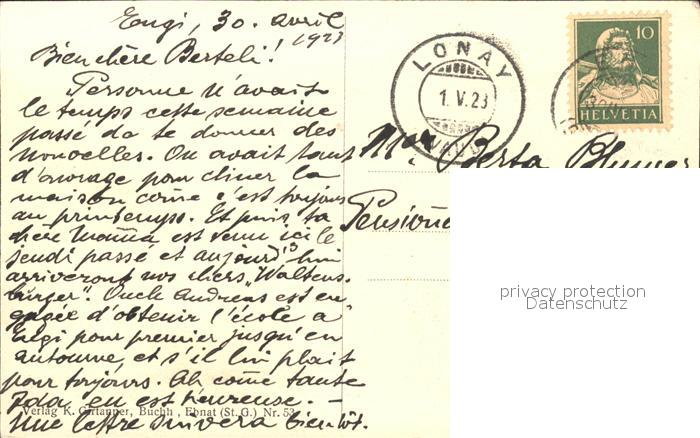 Engi, 30. avril
1923
Bien chère Berteli!
Personne n'avait
le temps cette semaine
passé da te donner des
nouvelles. On avait tant
d'ouvrage pour
la
maison come c'est toujours
au printemps. Et puis ta
chère Mama est venu ici le
jeudi passé et aujourd'hui
arriveront nos chers „Waltens-
burger". Onch Andreas est en
gagée d'obtenir l'école a
Engi pour premier jusqu'en
automne, et s'il lui plait
pour toujours. Ah come tante
Ida en est heureuse. —
Une lettre suivera bientôt.
Verlag K. Girtanner, Buchh., Ebnat (St. G.) Nr. 53
LONAY
1. V. 23
VAUD
10
HELVETIA
Berta Blumer
privacy protection
Datenschutz